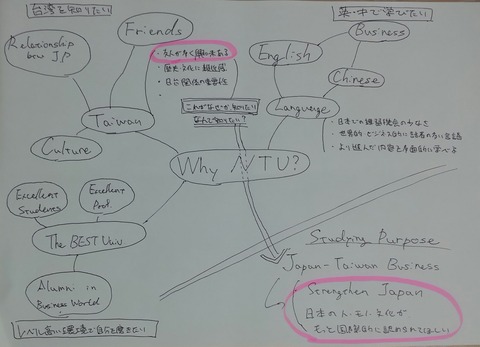 台湾を知りたい
英・中で学びたい
Friends
Business
Relationship
btw JP
English
Chinese
・友人が多く興味ある
・歴史・文化に親近感
・日台関係の重要性
これがなぜか知りたい
なんで知りたい？
Taiwan
Language
・日本での練習機会の少なさ
・世界的・ビジネス的に話者の多い言語
・より進んだ内容を多面的に学べる
Culture
Why NTU?
Excellent
Students
Excellent
Prof.
The BEST Univ
Alumni in
Business World
レベル高い環境で自分を磨きたい
Studying Purpose
Japan-Taiwan Business
Strengthen Japan
日本の人・モノ・文化が
もっと国際的に認められてほしい